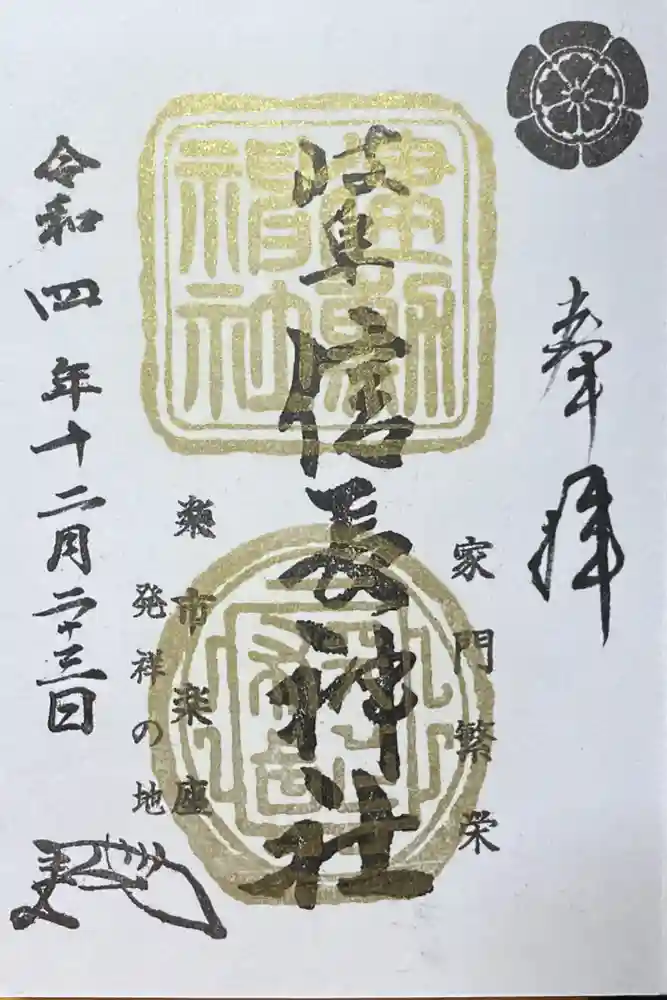 奉拝
家門繁栄
岐阜信長神社
建勲神社
楽市楽座
発祥の地
令和四年十二月二十三日